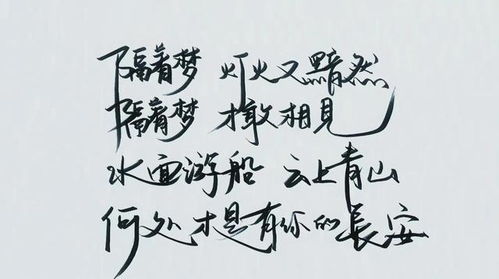 隔着梦 灯火又黯然
隔着梦 才敢相見
水面游船 云上青山
何处才是有你的長安